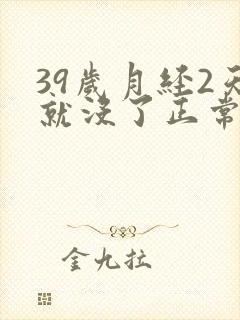 39歲月経2天
就沒了正常
金九拉